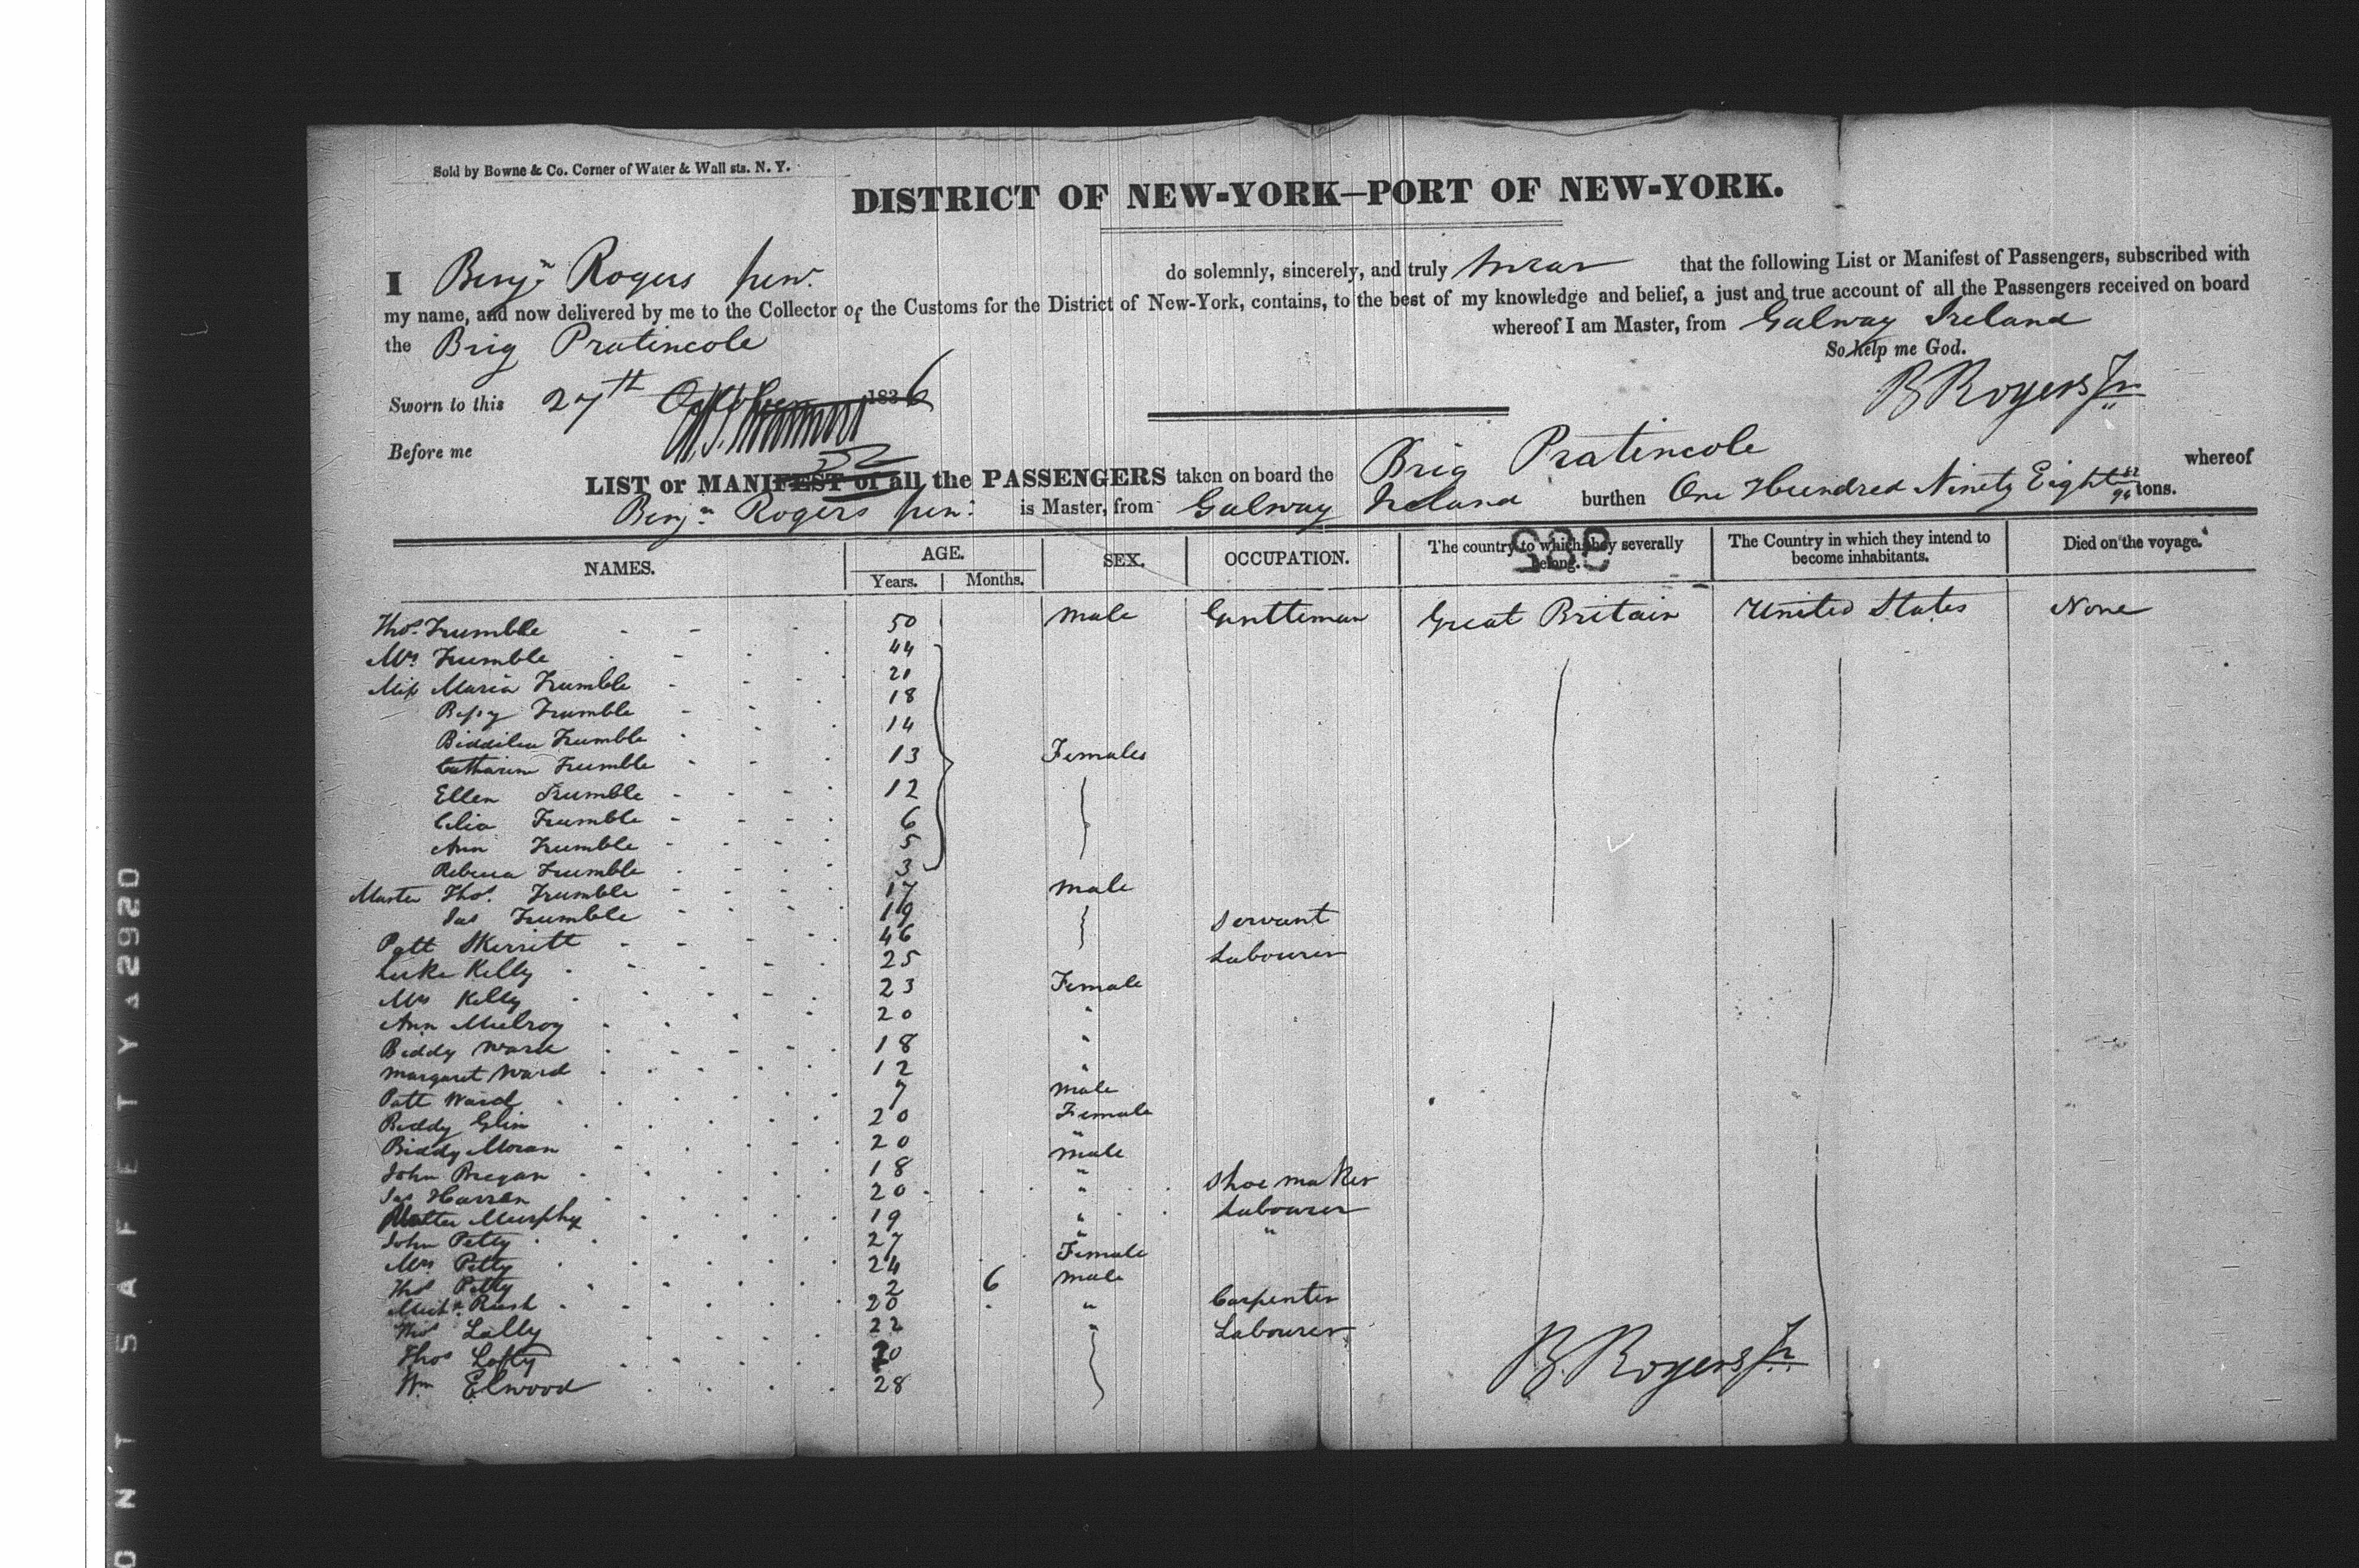 Sold by Bowne & Co. Corner of Water & Wall sts. N. Y.
DISTRICT OF NEW-YORK—PORT OF NEW-YORK.
I Benjn Rogers do solemnly, sincerely, and truly swear that the following List or Manifest of Passengers, subscribed with
my name, and now delivered by me to the Collector of the Customs for the District of New-York, contains, to the best of my knowledge and belief, a just and true account of all the Passengers received on board
the Brig Pratincole whereof I am Master, from Galway Ireland
So help me God.
Sworn to this 27th October 1836
B Rogers Jr
Before me
32
LIST or MANIFEST of all the PASSENGERS taken on board the Brig Pratincole whereof
Benjn Rogers is Master, from Galway Ireland burthen One Hundred Ninety Eight tons.
NAMES. AGE. Years. Months. SEX. OCCUPATION. The country to which they severally belong. The Country in which they intend to become inhabitants. Died on the voyage.
Thos Trumble 50 male Gentleman Great Britain United States None
Mrs Trumble 44
Miss Maria Trumble 21
Bessy Trumble 18
Trumble 14
Catharine Trumble 13 Females
Ellen Trumble 12
Celia Trumble 6
Ann Trumble 5
Rebecca Trumble 3
Master Thos. Trumble 17 male
Jas Trumble 19
Patt Skerritt 46 Servant
Luke Kelly 25 Labourer
Mrs Kelly 23 Female
Ann Mulroy 20 "
Biddy Ward 18 "
Margaret Ward 12 "
Patt Ward 7 male
Biddy Glin 20 Female
Biddy Moran 20 "
John Bregan 18 male
Jas Harran 20 " Shoe maker
Murphy 19 " Labourer
John Petty 27 " "
Mrs Petty 24 Female
Thos Petty 2 6 male
Michl Rush 20 " Carpenter
Thos Lally 22 " Labourer
Thos Lofty 20
Wm Elwood 28
B. Rogers Jr.